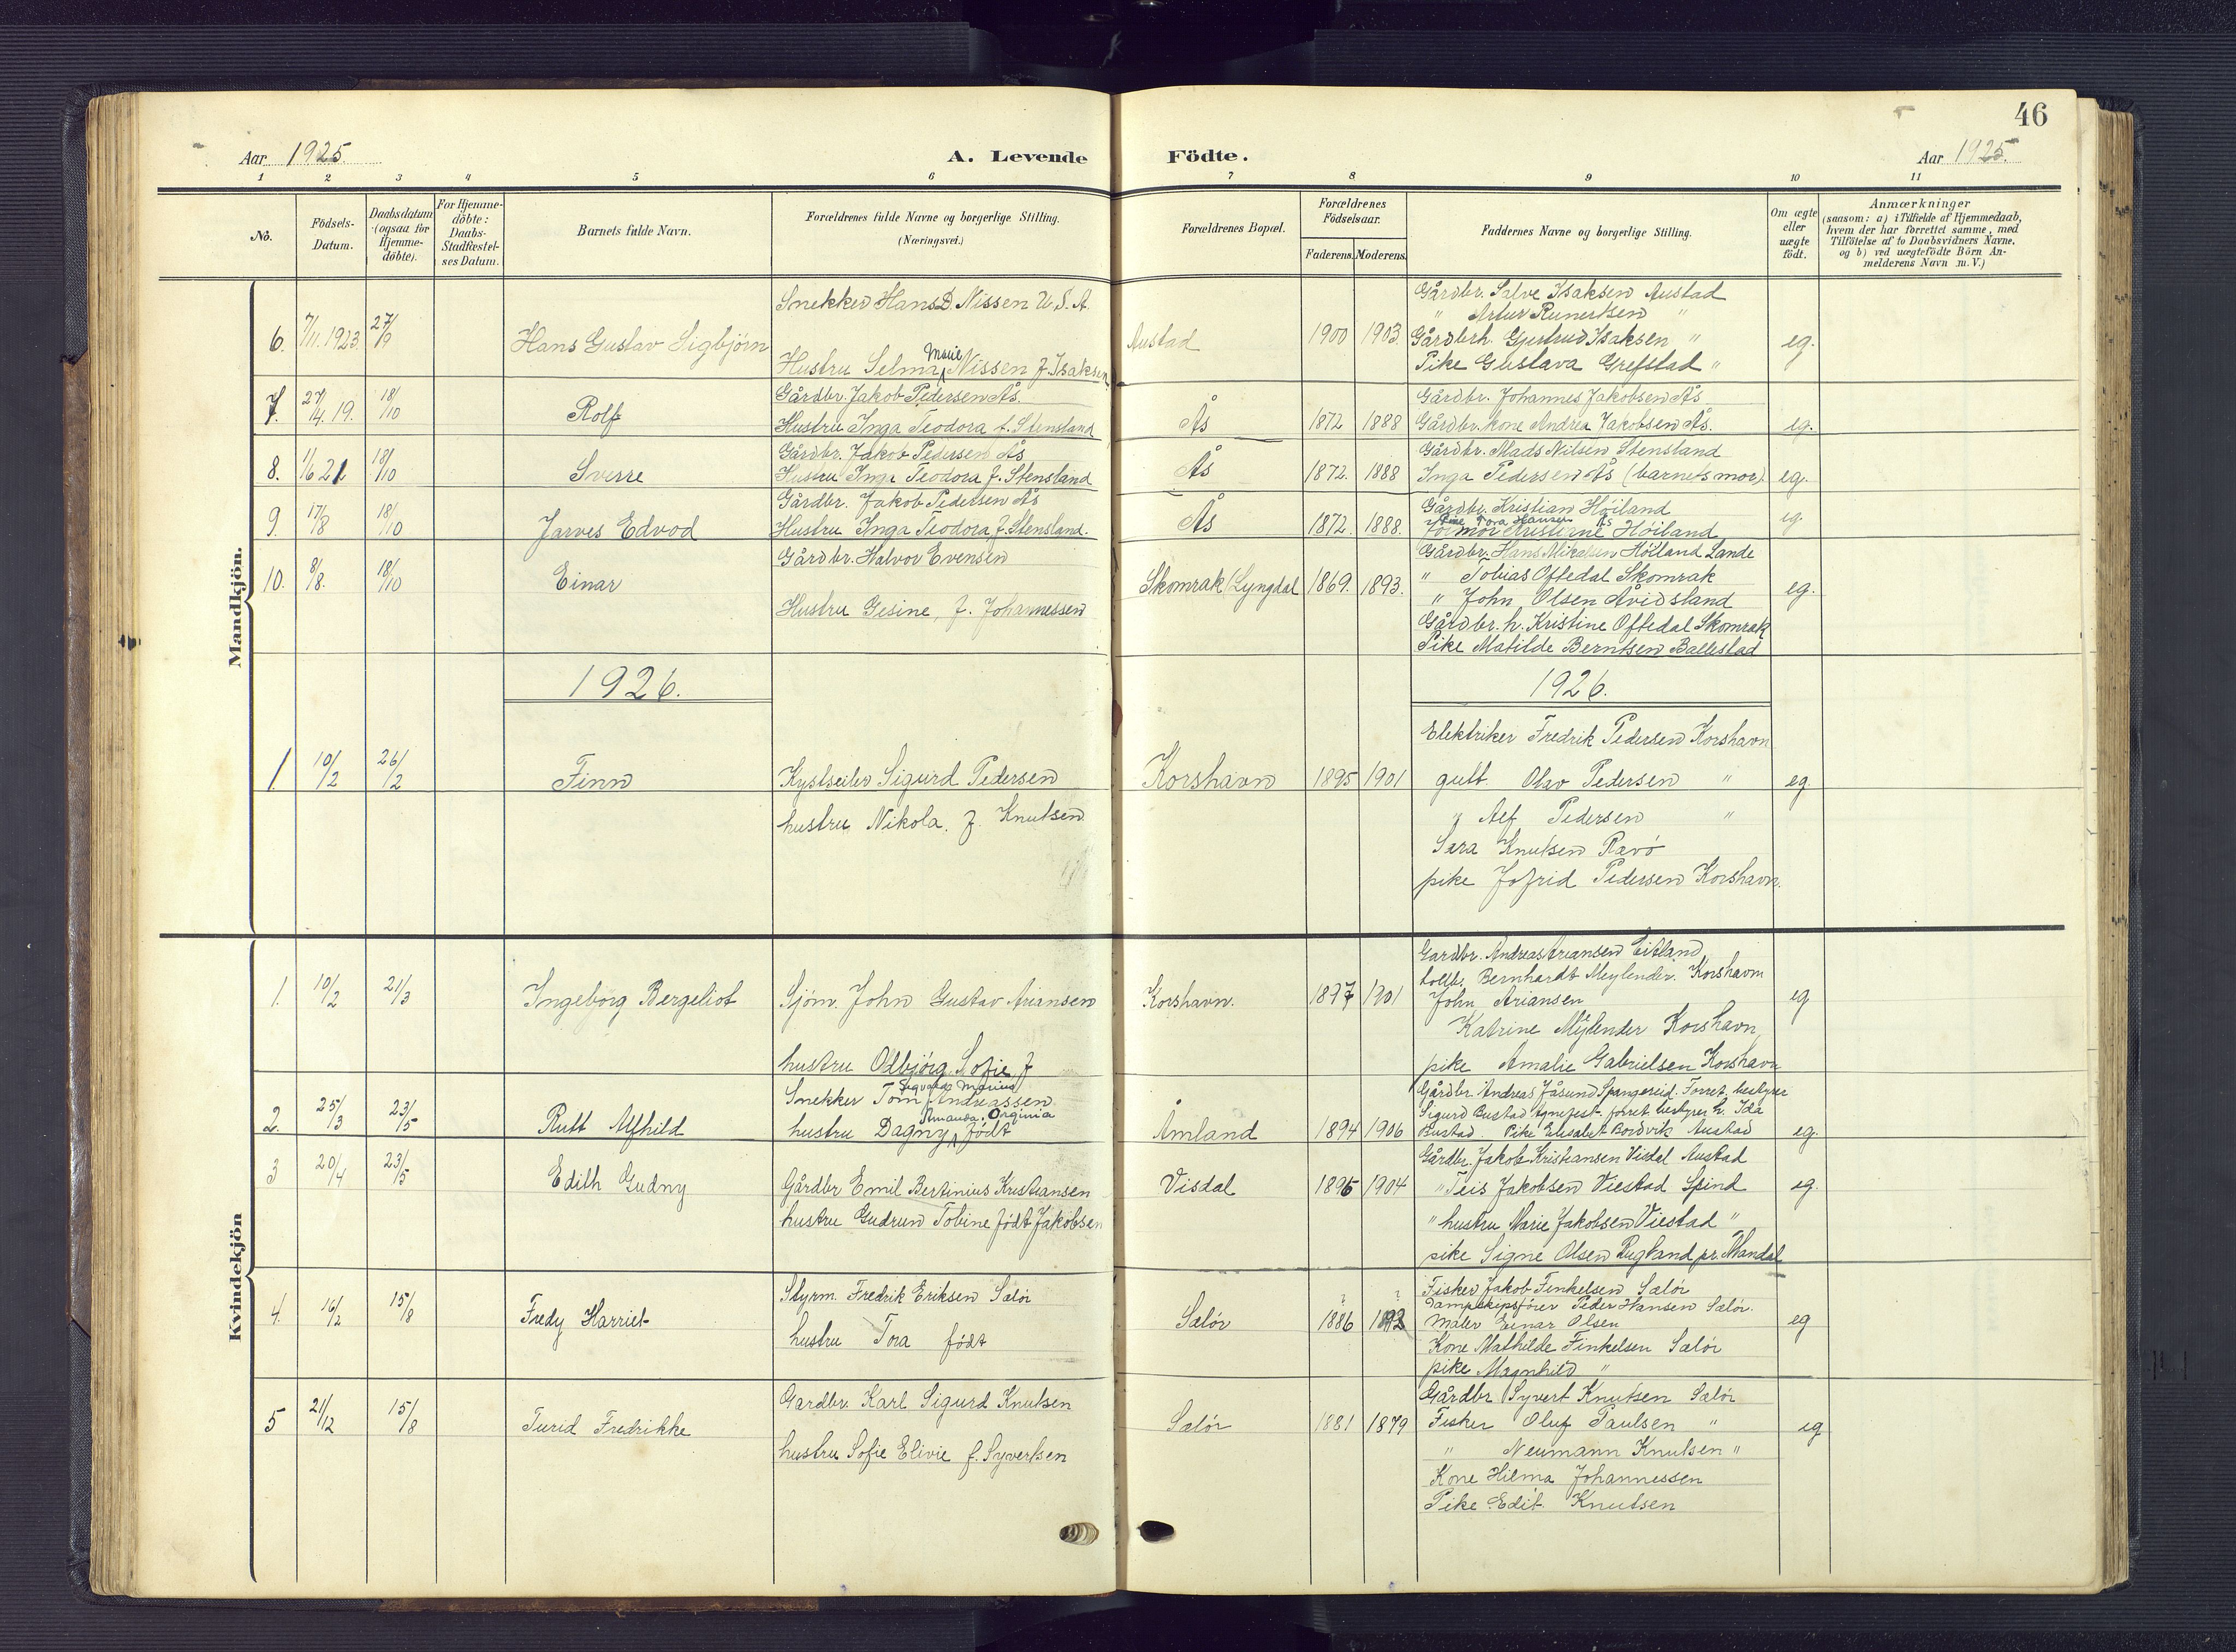 46
Aar 1925.
A. Levende
Födte.
Aar 1925.
1 2 3 4 5 6 7 8 9 10 11
No.
Födsels-
Datum.
Daabsdatum
(ogsaa for
Hjemme-
döbte).
For Hjemme-
döbte:
Daabs-
Stadfæstel-
ses Datum.
Barnets fulde Navn.
Forældrenes fulde Navne og borgerlige Stilling.
(Næringsvei.)
Forældrenes Bopæl.
Forældrenes
Födselsaar.
Faderens.
Moderens.
Faddernes Navne og borgerlige Stilling.
Om ægte
eller
uægte
födt.
Anmærkninger
(saasom: a) i Tilfælde af Hjemmedaab,
hvem der har forrettet samme, med
Tilföielse af to Daabsvidners Navne,
og b) ved uægtefödte Börn An-
melderens Navn m. V.)
Mandkjön.
6. 7/11.1923. 27/9 Hans Gustav Sigbjörn
Snekker Hans D. Nissen U.S.A.
Hustru Selma Marie Nissen f. Isaksen
Austad 1900 1903.
Gårdbr. Salve Isaksen Austad
" Artur Runertsen "
Gårdbrh. Gjertrud Isaksen "
Pike Gustava Grefstad "
eg.
7. 27/4.19. 18/10 Rolf
Gårdbr. Jakob Pedersen Ås.
Hustru Inga Teodora f. Stensland
Ås 1872 1888
Gårdbr. Johannes Jakobsen Ås
Gårdbr. kone Andrea Jakobsen Ås.
eg.
8. 1/6 21 18/10 Sverre
Gårdbr. Jakob Pedersen Ås
Hustru Inga Teodora f. Stensland
Ås 1872. 1888
Gårdbr. Mads Nilsen Stensland
Inga Pedersen Ås (barnets mor).
eg.
9. 17/8 18/10 Jarves Edvod
Gårdbr. Jakob Pedersen Ås
Hustru Inga Teodora f. Stensland.
Ås 1872. 1888.
Gårdbr. Kristian Höiland
Pike Tora Hansen Ås
Höiland
eg.
10. 8/8. 18/10 Einar
Gårdbr. Halvor Evensen
Hustru Gesine, f. Johannessen
Skomrak (Lyngdal 1869. 1893.
Gårdbr. Hans Mikalsen Hölland Lande
" Tobias Oftedal Skomrak
" John Olsen Åvidsland
Gårdbr. h. Kristine Oftedal Skomrak
Pike Matilde Berntsen Ballestad
eg.
1926.
1926.
1. 10/2 26/2 Finn
Kystseiler Sigurd Pedersen
hustru Nikola. f. Knutsen
Korshavn 1895 1901
Elektriker Fredrik Pedersen Korshavn
gutt. Olav Pedersen "
" Alf Pedersen "
Sara Knutsen Ravö
pike Jofrid Pedersen Korshavn.
eg.
Kvindekjön
1. 10/2 21/3 Ingeborg Bergeliot
Sjöm. John Gustav Ariansen
hustru Olbjörg Sofie f
Korshavn. 1897 1901
Gardbr. Andreas Ariansen Eitland
tollb. Bernhardt Meylender. Korshavn
John Ariansen
Katrine Mylender Korshavn
pike Amalie Gabrielsen Korshavn
eg
2. 25/3 23/5 Rutt Alfhild
Snekker Tom Sigvald Marius Andreassen
hustru Dagny Amanda. Orginia födt
Åmland 1894 1906
Gårdbr. Andreas Jåsund Spangereid. Forret. bestyrer
Sigurd Bustad Agnefest. forret bestyrer h. Ida
Bustad. Pike Elisabet Bordvik Austad
eg.
3 20/4 23/5 Edith Gudny
Gårdbr Emil Bertinius Kristiansen
hustru Gudrun Tobine födt Jakobsen
Visdal 1895 1904
Gårdbr. Jakob Kristiansen Visdal Austad
" Teis Jakobsen Viestad Spind
" hustru Marie Jakobsen Viestad "
pike Signe Olsen Rugland pr. Mandal
eg.
4. 16/2 15/8 Fredy Harriet
Styrm. Fredrik Eriksen Salör
hustru Tora födt
Salör ? 1886 ? 1892
Fisker Jakob Finkelsen Salör
Dampskipsförer Peder Hansen Salör.
Maler Einar Olsen
Kone Mathilde Finkelsen Salör
pike Magnhild "
eg
5 21/12 15/8 Turid Fredrikke
Gardbr. Karl Sigurd Knutsen
hustru Sofie Elivie f. Syvertsen
Salör 1881 1879
Gårdbr Syvert Knutsen Salör
Fisker Oluf Paulsen "
" Neumann Knutsen "
Kone Hilma Johannessen
Pike Edit. Knutsen
eg